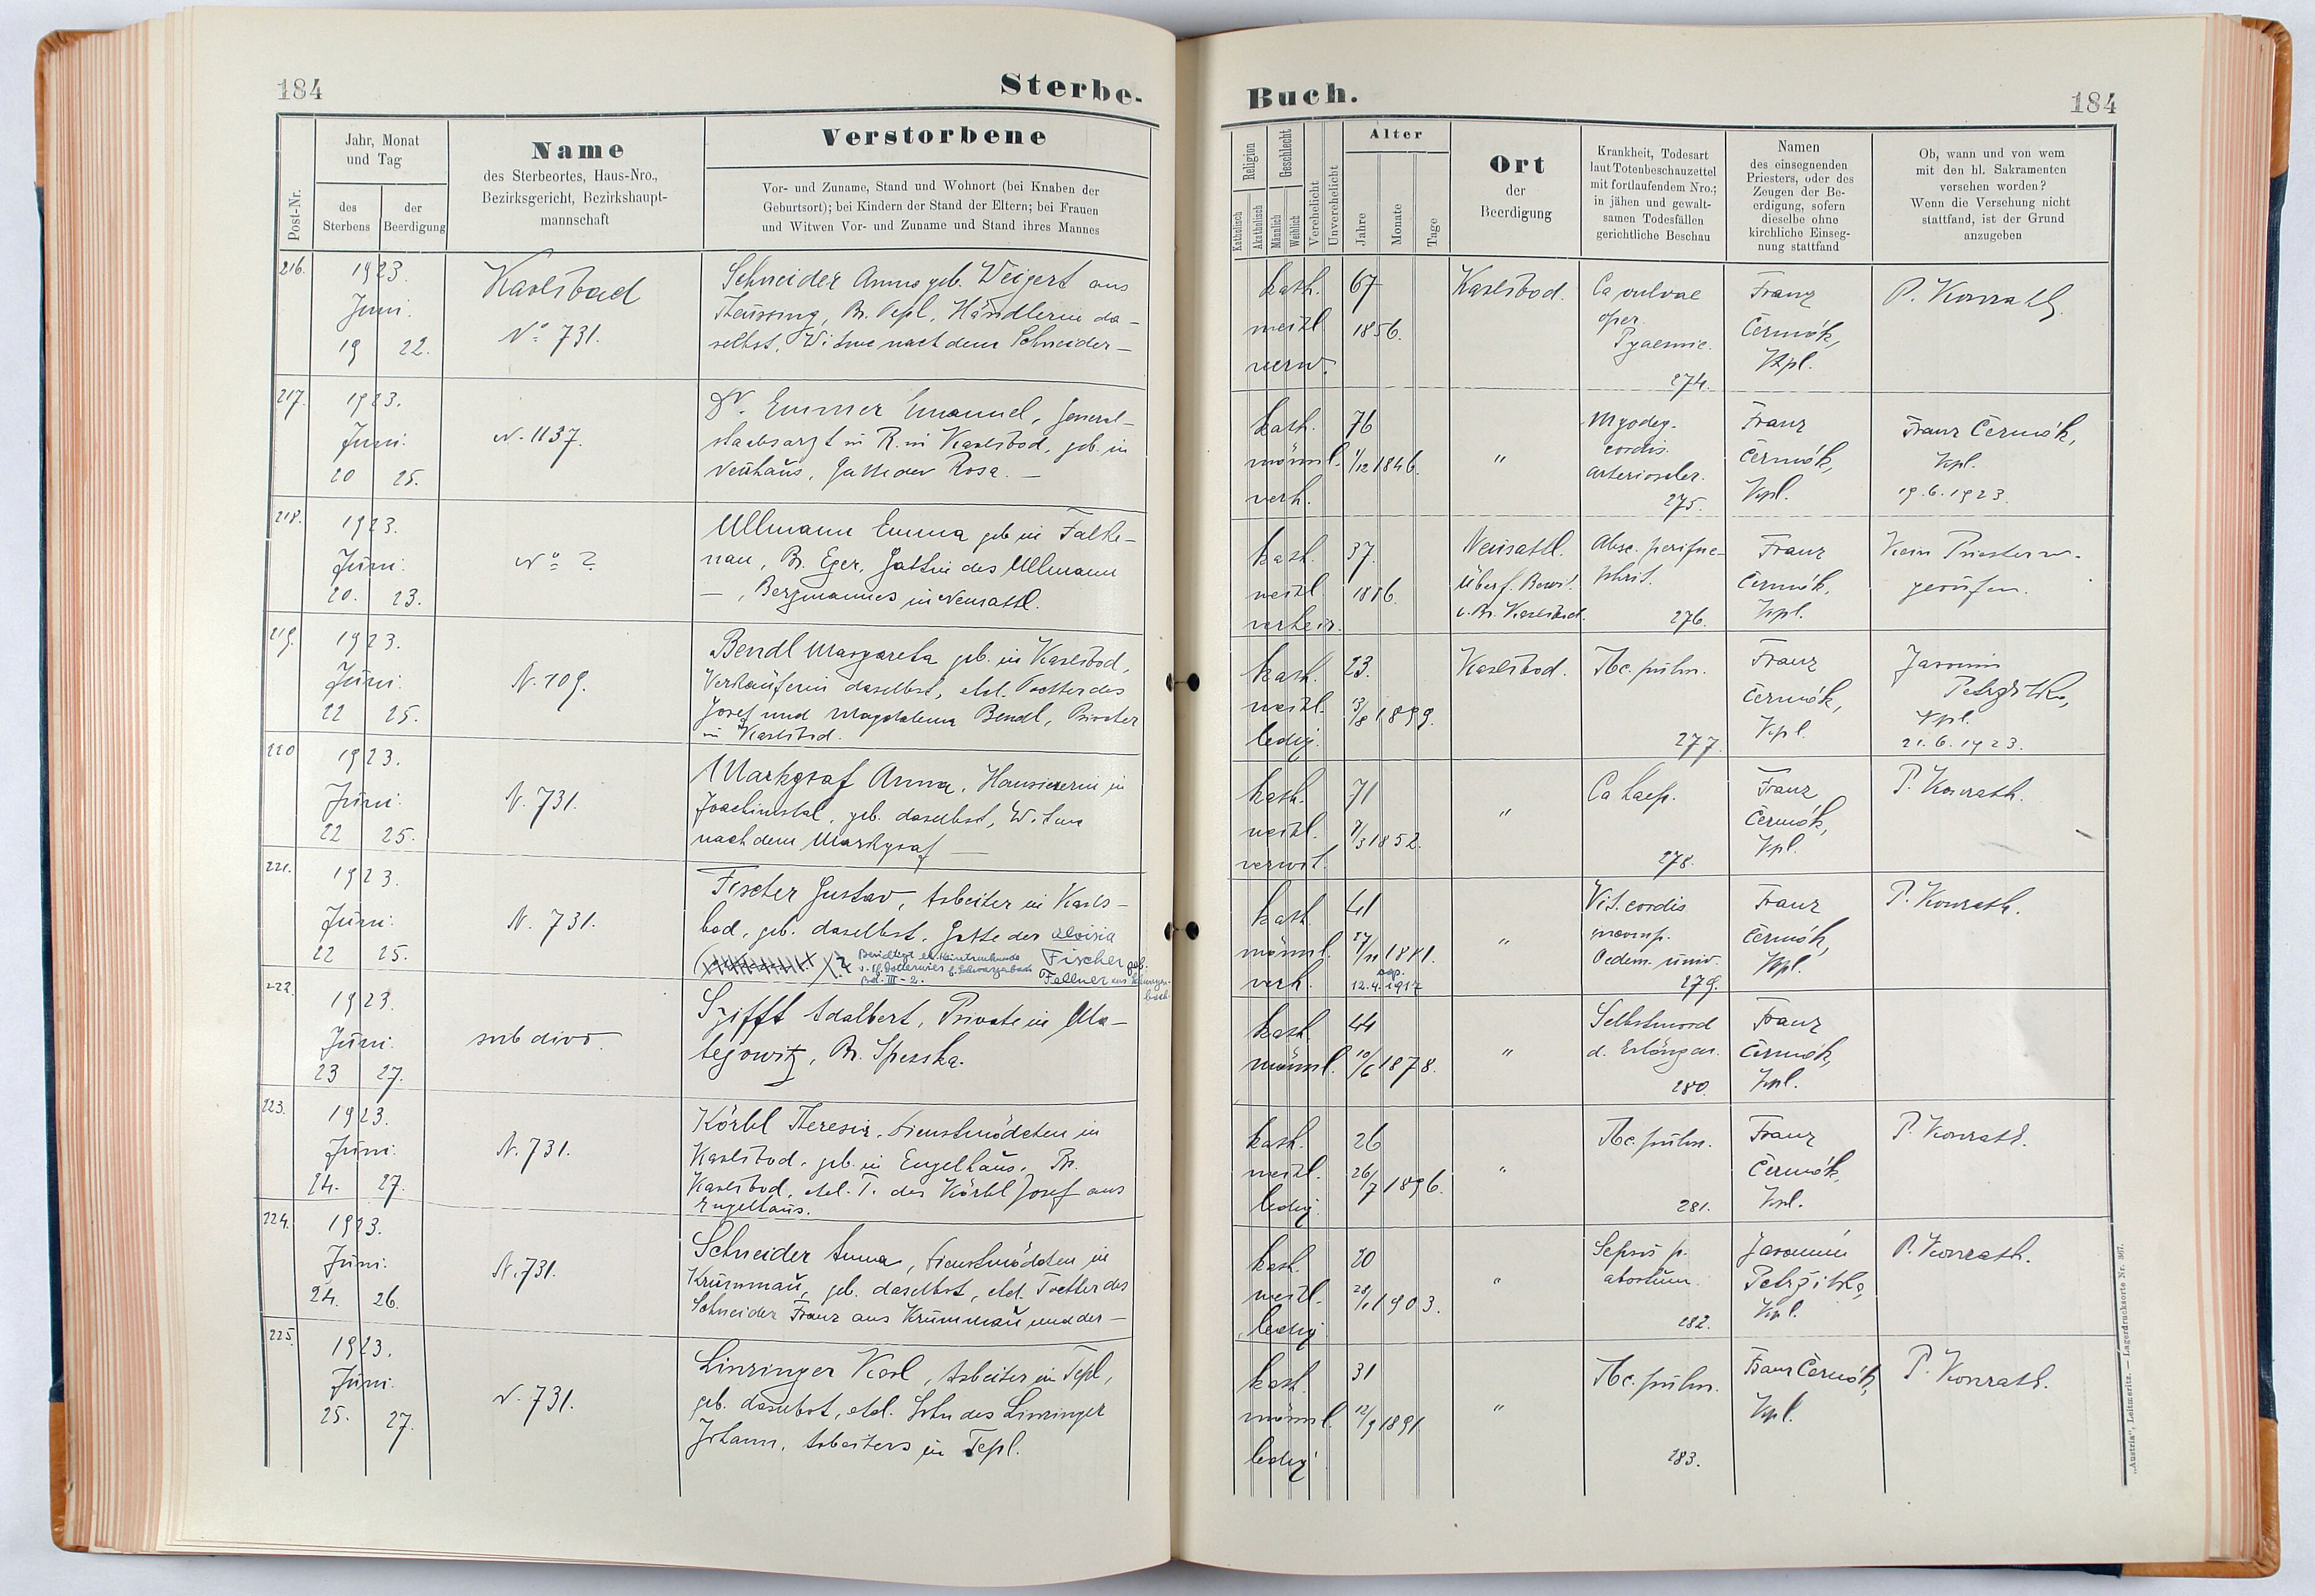 184
Sterbe-
Post-Nr.
Jahr, Monat
und Tag
des
Sterbens
der
Beerdigung
Name
des Sterbeortes, Haus-Nro.,
Bezirksgericht, Bezirkshaupt-
mannschaft
Verstorbene
Vor- und Zuname, Stand und Wohnort (bei Knaben der
Geburtsort); bei Kindern der Stand der Eltern; bei Frauen
und Witwen Vor- und Zuname und Stand ihres Mannes
216.
1923.
Juni.
19 22.
Karlsbad
N° 731.
Schneider Anna geb. Weigert aus
Theussing, Br. Tepl, Händlerin da-
selbst, Witwe nach dem Schneider —
217.
1923.
Juni.
20 25.
N. 1137.
Dr. Emmer Emanuel, General-
stabsarzt in R. in Karlsbad, geb. in
Neuhaus, Gatte der Rosa. —
218.
1923.
Juni.
20. 23.
N° ?
Ullmann Emma geb. in Falke-
nau, Br. Eger, Gattin des Ullmann
—, Bergmannes in Neusattl.
219.
1923.
Juni.
22 25.
N. 109.
Bendl Margareta geb. in Karlsbad,
Verkäuferin daselbst, ehel. Tochter des
Josef und Magdalena Bendl, Privater
in Karlsbad.
220
1923.
Juni.
22 25.
N. 731.
Markgraf Anna, Hausiererin in
Joachimstal, geb. daselbst, Witwe
nach dem Markgraf —
221.
1923.
Juni.
22 25.
N. 731.
Fischer Gustav, Arbeiter in Karls-
bad, geb. daselbst, Gatte der Aloisia
Fischer geb.
Fellner aus
Bd. III - 2.
222.
1923.
Juni.
23 27.
sub divo.
Szifft Adalbert, Private in
Br.
223.
1923.
Juni.
24. 27.
N. 731.
Körbl Theresia, Dienstmädchen in
Karlsbad, geb. in Engelhaus, Br.
Karlsbad, ehel. T. des Körbl Josef aus
Engelhaus.
224.
1923.
Juni.
24. 26.
N. 731.
Schneider Anna, Dienstmädchen in
Krummau, geb. daselbst, ehel. Tochter des
Schneider Franz aus Krummau und der —
225.
1923.
Juni.
25. 27.
N. 731.
Linzinger Karl, Arbeiter in Tepl,
geb. daselbst, ehel. Sohn des Linzinger
Johann, Arbeiters in Tepl.
Buch.
184
Religion
Katholisch
Akatholisch
Geschlecht
Männlich
Weiblich
Verehelicht
Unverehelicht
Alter
Jahre
Monate
Tage
Ort
der
Beerdigung
Krankheit, Todesart
laut Totenbeschauzettel
mit fortlaufendem Nro.;
in jähen und gewalt-
samen Todesfällen
gerichtliche Beschau
Namen
des einsegnenden
Priesters, oder des
Zeugen der Be-
erdigung, sofern
dieselbe ohne
kirchliche Einseg-
nung stattfand
Ob, wann und von wem
mit den hl. Sakramenten
versehen worden?
Wenn die Versehung nicht
stattfand, ist der Grund
anzugeben
kath.
weibl.
verw.
67
1856.
Karlsbad.
Ca vulvae
oper.
Pyaemie.
274.
Franz
Čermák,
Kpl.
P. Konrath.
kath.
männl.
verh.
76
1/12 1846.
"
Myodeg.
cordis.
arterioscler.
275.
Franz
Čermák,
Kpl.
Franz Čermák,
Kpl.
19.6.1923.
kath.
weibl.
verheir.
37.
1886.
Neusattl.
Überf. Bew.
v. Br. Karlsbad.
Absc. perine-
phrit.
276.
Franz
Čermák,
Kpl.
Kein Priester w.
gerufen.
kath.
weibl.
ledig.
23.
3/8 1899.
Karlsbad.
Tbc. pulm.
277.
Franz
Čermák,
Kpl.
Jaromir
Petržilka,
Kpl.
21.6.1923.
kath.
weibl.
verwit.
71
7/3 1852.
"
278.
Franz
Čermák,
Kpl.
P. Konrath.
kath.
männl.
verh.
41
27/11 1881.
12.4. 1917
"
Vit. cordis
incomp.
Oedem. univ.
279.
Franz
Čermák,
Kpl.
P. Konrath.
kath.
männl.
44
10/6 1878.
"
Selbstmord
d. Erhängen.
280.
Franz
Čermák,
Kpl.
kath.
weibl.
ledig.
26
26/7 1896.
"
Tbc. pulm.
281.
Franz
Čermák,
Kpl.
P. Konrath.
kath.
weibl.
ledig
20
28/1 1903.
"
Sepsis p.
abortum.
282.
Jaromir
Petržilka,
Kpl.
P. Konrath.
kath.
männl.
ledig
31
12/9 1891
"
Tbc. pulm.
283.
Franz Čermák,
Kpl.
P. Konrath.
„Austria", Leitmeritz. — Lagerdrucksorte Nr. 307.